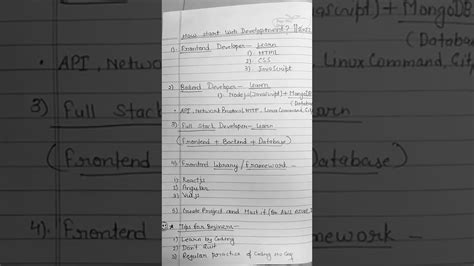 How start Web Development?
1) Frontend Developer - Learn
1) HTML
2) CSS
3) JavaScript
2) Backend Developer - Learn
1) Nodejs(JavaScript) + MongoDB
(Database)
API, Network Protocol HTTP, Linux Command, Git
3) Full Stack Developer - Learn
(Frontend + Backend + Database)
4) Frontend Library / Framework -
1) Reactjs
2) Angular
3) Vuejs
5) Create Project and Host it
Tips for Beginners -
1) Learn by Coding
2) Don't Quit
3) Regular Practice of Coding
API, Networ
3)
Full Stack
(Frontend
4). Frontend
script) + MongoDB
(Databas
Linux Command, Git
Database)
work -